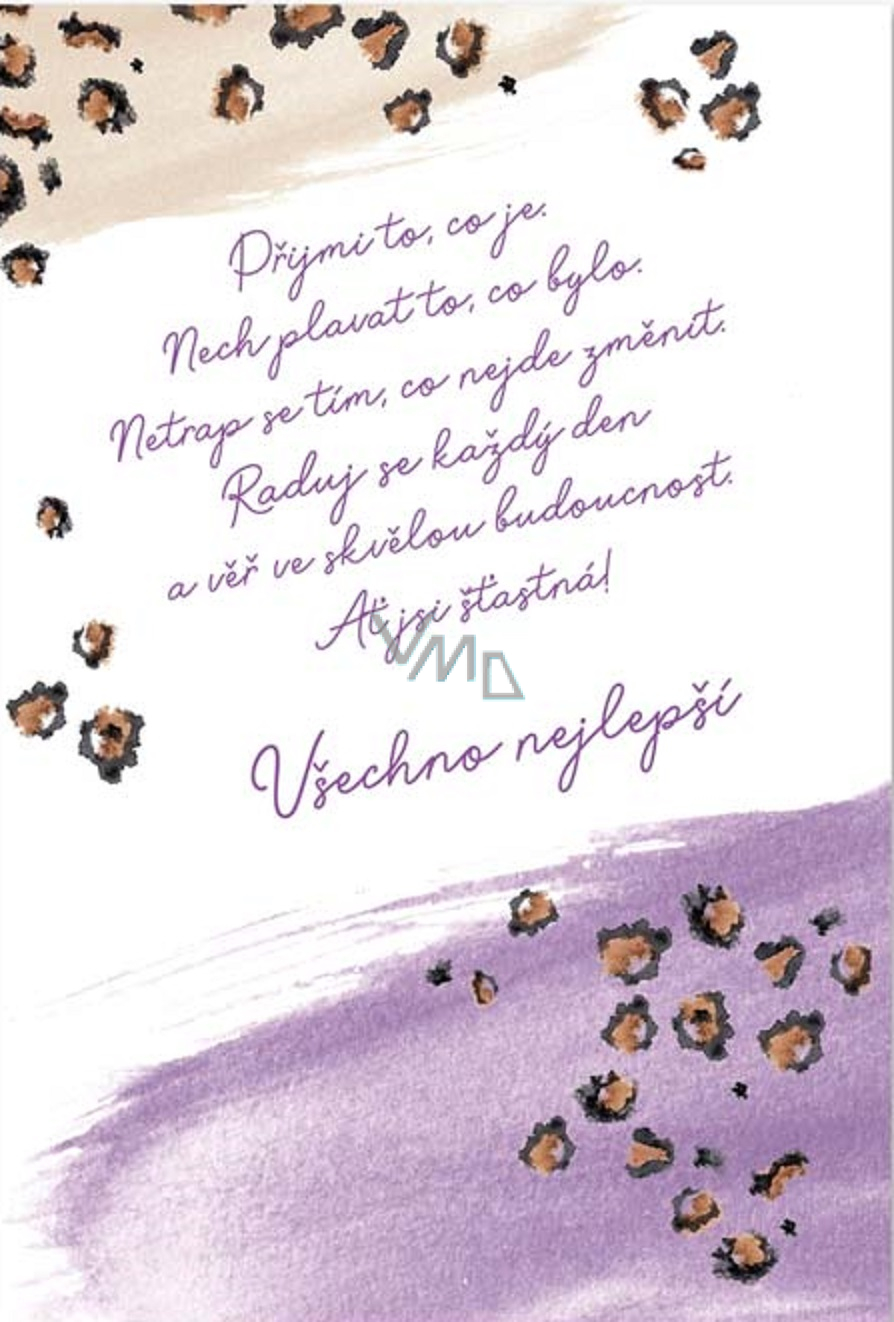 Přijmi to, co je.
Nech plavat to, co bylo.
Netrap se tím, co nejde změnit.
Raduj se každý den
a věř ve skvělou budoucnost.
Ať jsi šťastná!
VMD
Všechno nejlepší